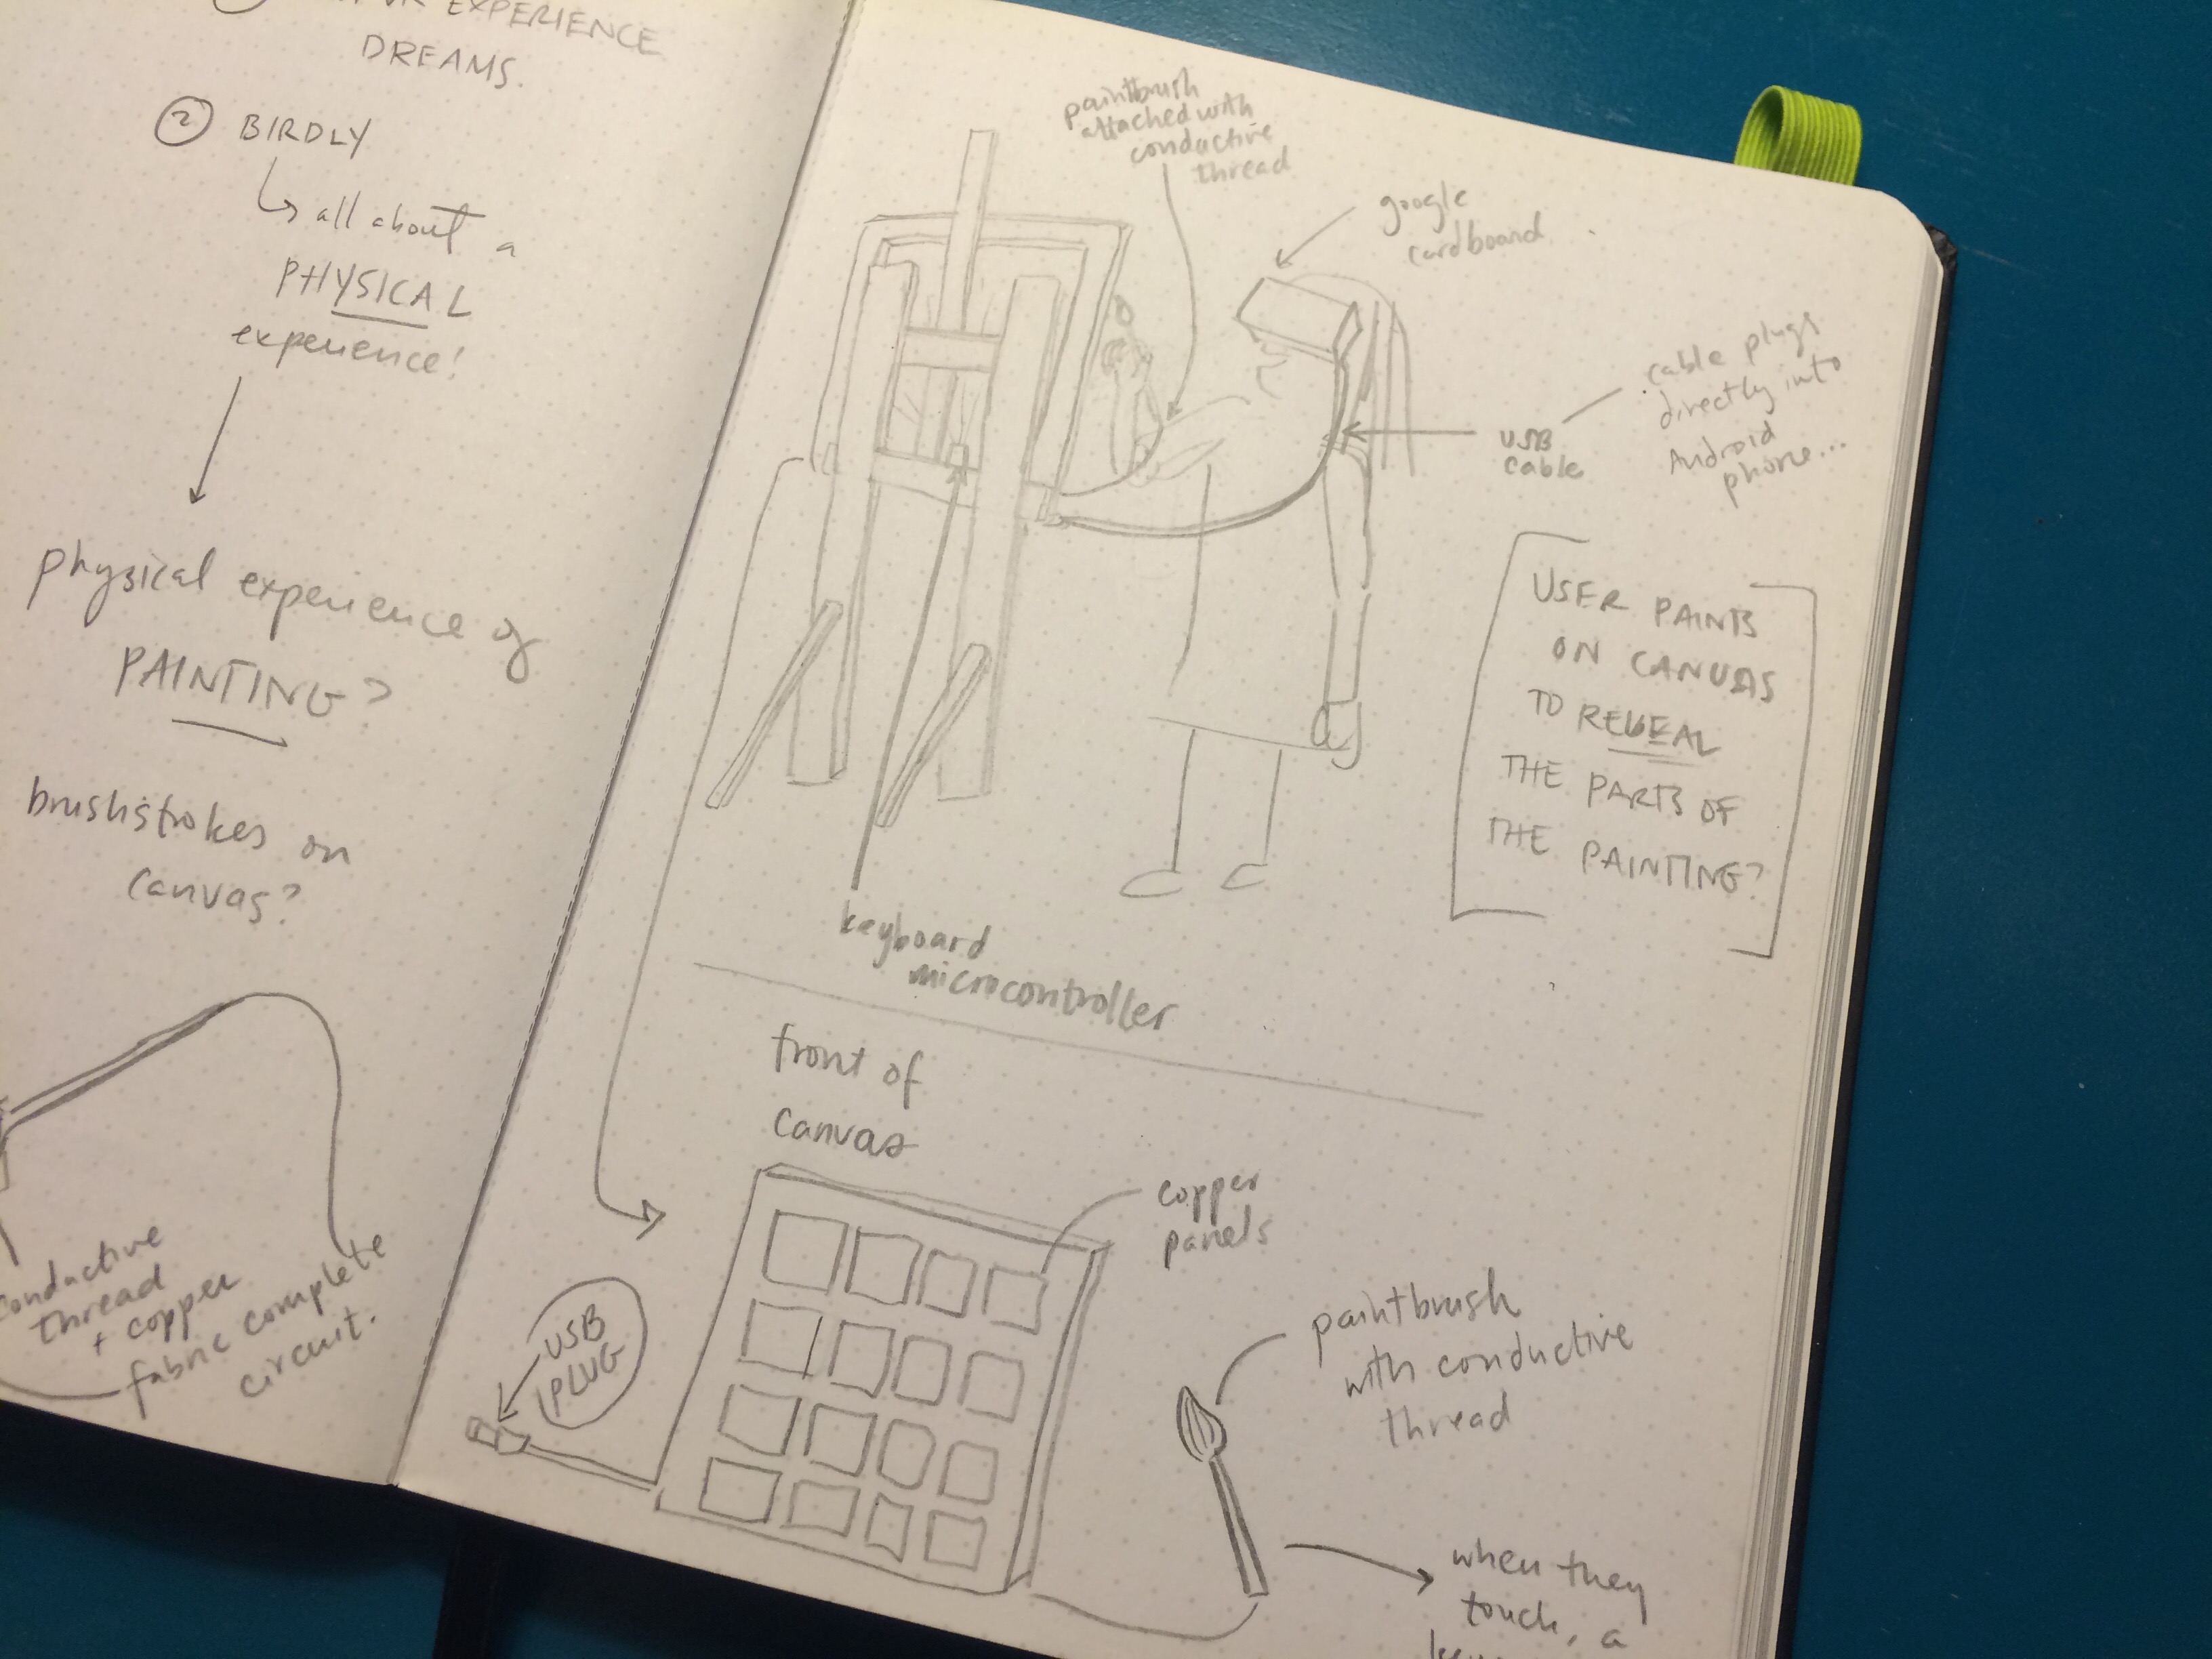 EXPERIENCE
DREAMS.
2 BIRDLY
all about a
PHYSICAL
experience!
physical experience of
PAINTING?
brushstrokes on
canvas?
conductive
thread
+ copper
fabric complete
circuit.
paintbrush
attached with
conductive
thread
google
cardboard
cable plugs
directly into
Android
phone...
USB
cable
USER PAINTS
ON CANVAS
TO REVEAL
THE PARTS OF
THE PAINTING?
keyboard
microcontroller
front of
canvas
copper
panels
USB
PLUG
paintbrush
with conductive
thread
when they
touch, a